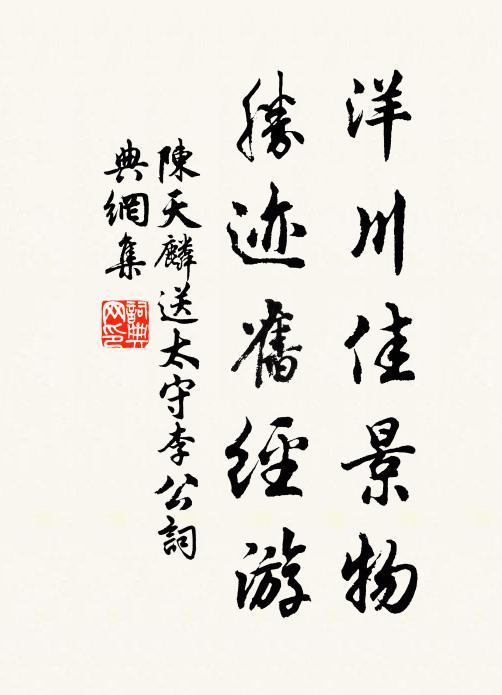 洋川佳景物
勝迹舊經游
陳天麟送太守李公詞
典網集
詞典網印